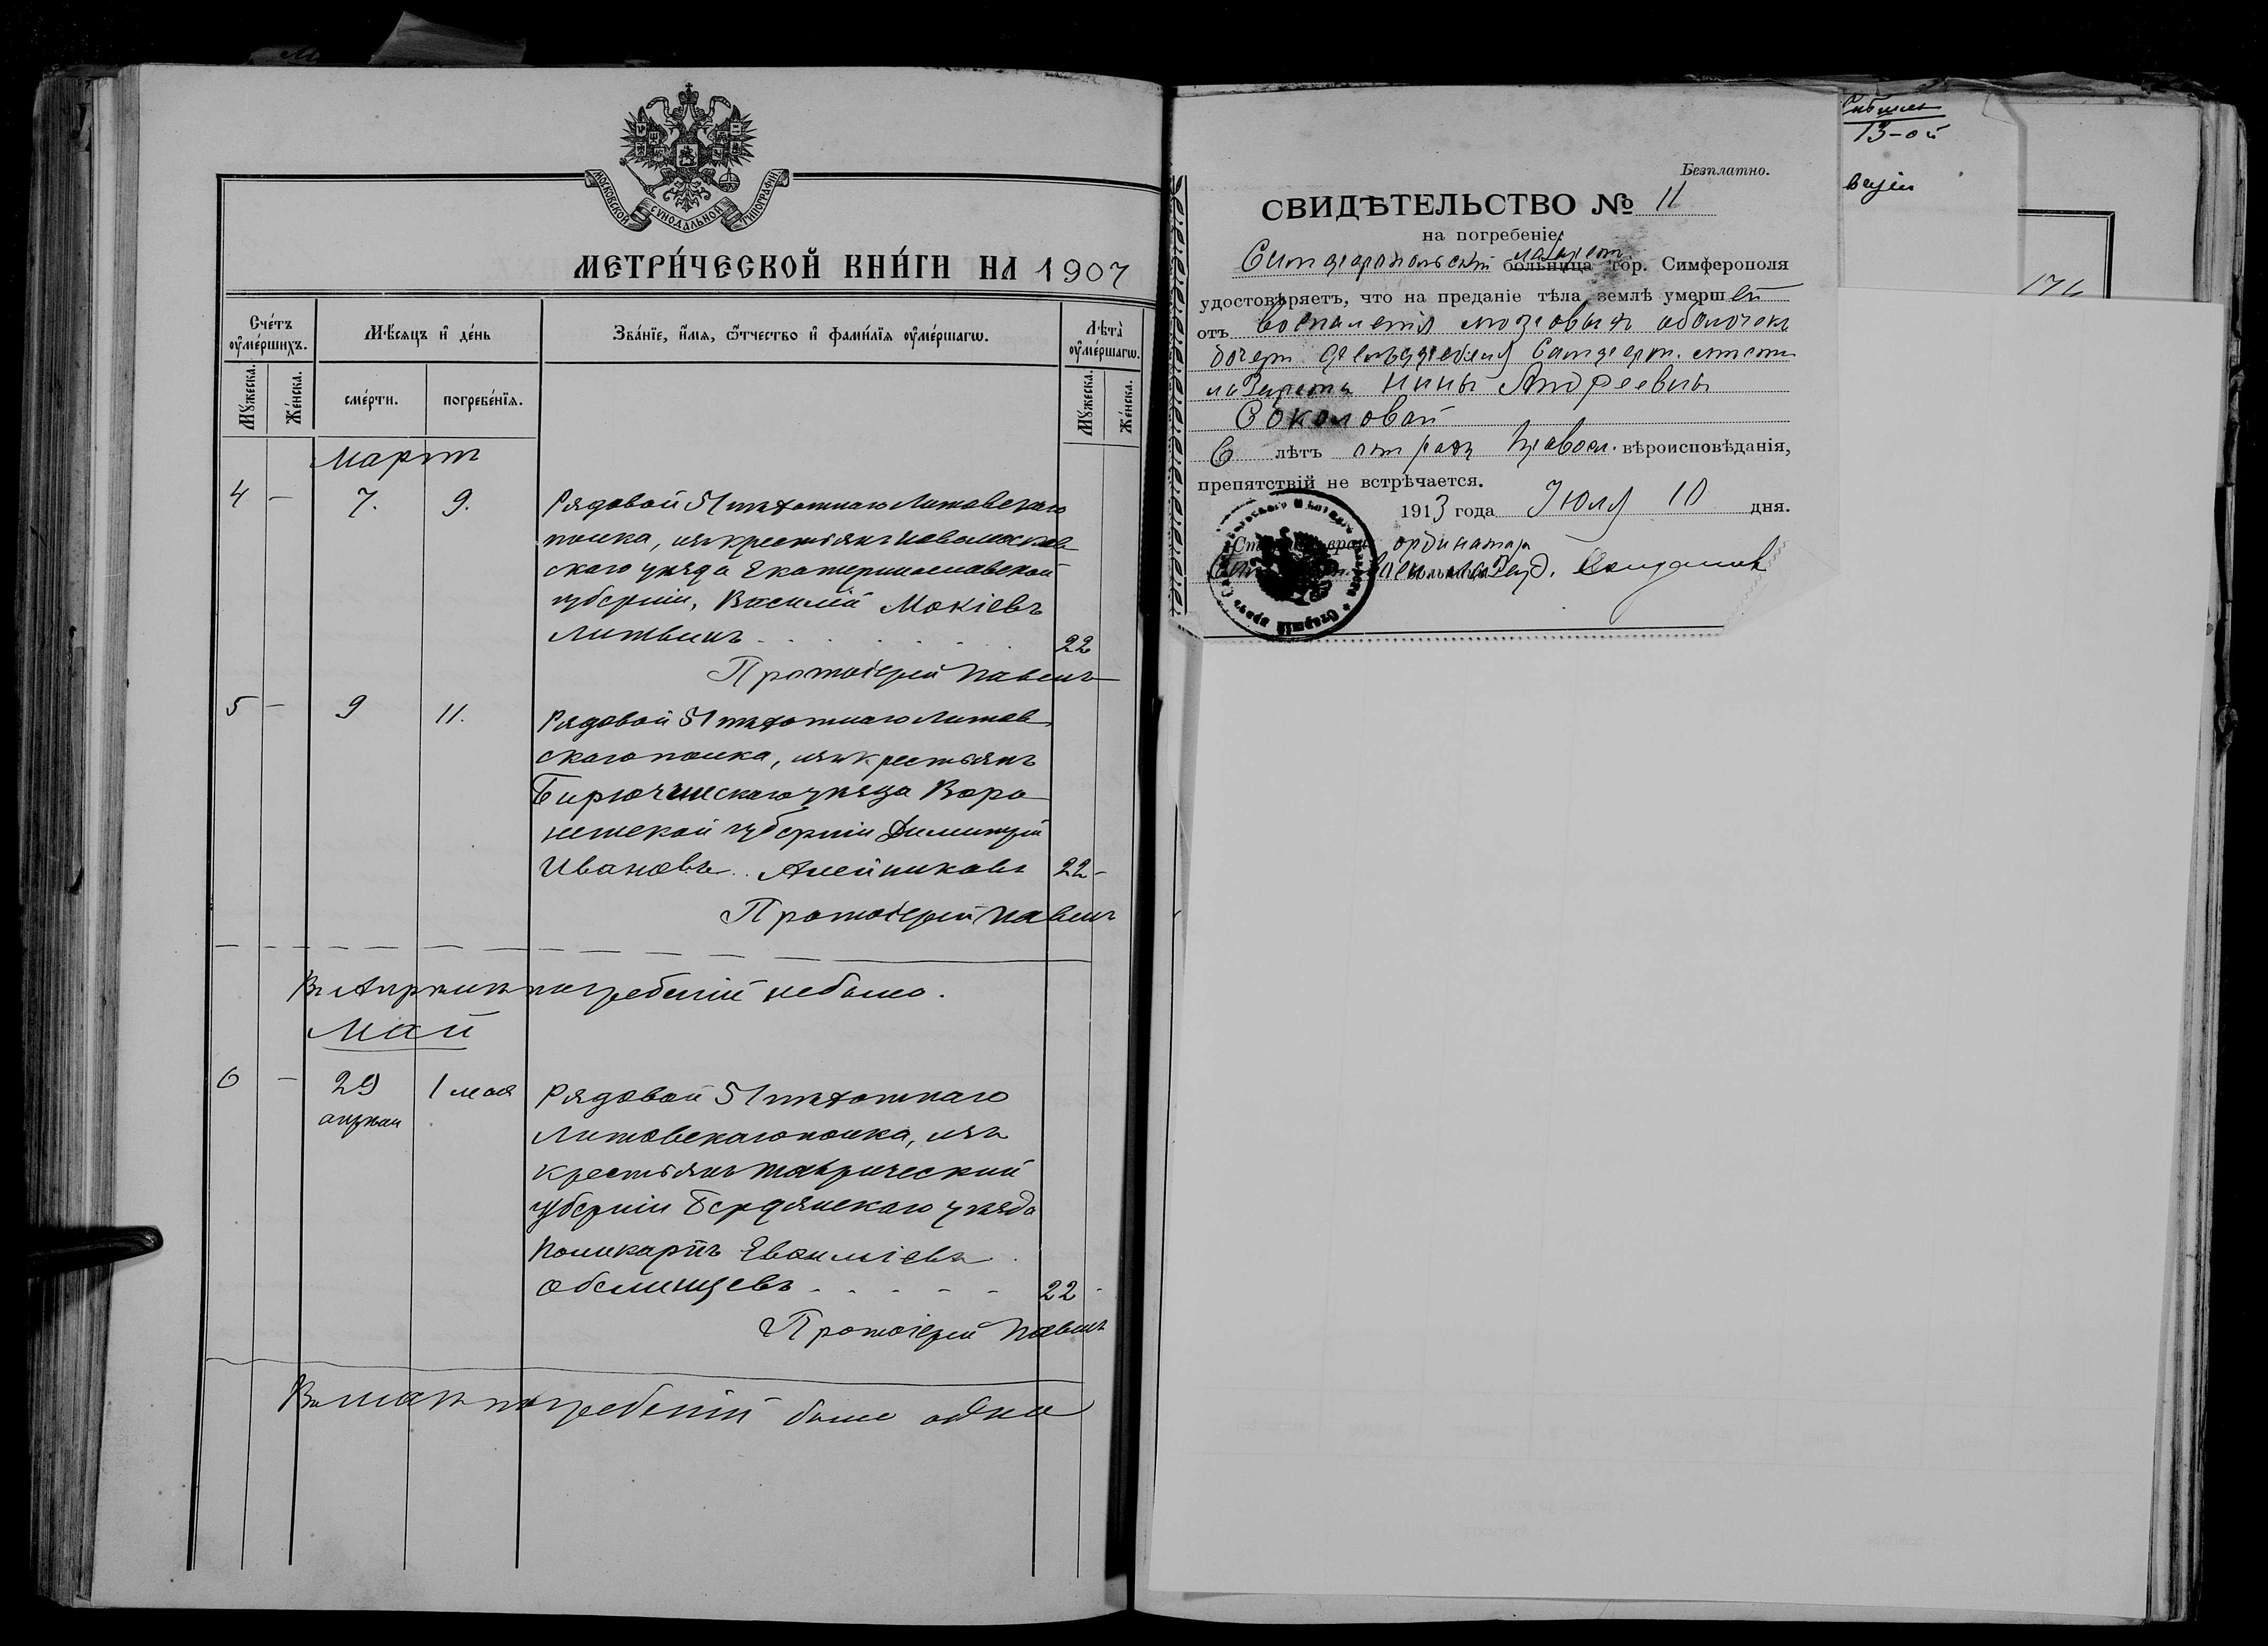 МОСКОВСКОЙ СУНОДАЛЬНОЙ ТИПОГРАФІИ
МЕТРИ́ЧЕСКОЙ КНИ́ГИ НА 1907
Сче́тъ оу҆ме́ршихъ.
Мѣ́сяцъ и҆ де́нь
Зва́нїе, и҆́мя, ѻ҆́тчество и҆ фами́лїя оу҆ме́ршагѡ.
Лѣта̀ оу҆ме́ршагѡ.
Мꙋ́жеска.
Же́нска.
сме́рти.
погребе́нїя.
Мꙋ́жеска.
Же́нска.
Мартъ
4 — 7. 9. Рядовой 51 пѣхотнаго Литовскаго
полка, изъ крестьянъ Новомосков-
скаго уѣзда Екатеринославской
губерніи, Василій Мокіевъ
Литвинъ . . . . . 22
Протоіерей Павелъ
5 — 9 11. Рядовой 51 пѣхотнаго Литов-
скаго полка, изъ крестьянъ
Бирюченскаго уѣзда Воро-
нежской губерніи Димитрій
Ивановъ Алейниковъ 22 -
Протоіерей Павелъ
Въ Апрѣлѣ погребеній не было.
Май
6 — 29 апрѣля 1 мая Рядовой 51 пѣхотнаго
Литовскаго полка, изъ
крестьянъ Таврической
губерніи Бердянскаго уѣзда
Поликарпъ
22 -
Протоіерей Павелъ
Въ маѣ погребеній было одно
Безплатно.
СВИДѢТЕЛЬСТВО № 11
на погребеніе.
Симферопольскій лазарет больница гор. Симферополя
удостовѣряетъ, что на преданіе тѣла землѣ умершей
отъ воспаленія мозговыхъ оболочекъ
дочери Симфероп. мѣстн.
лазарета Нины Андреевны
Соколовой
6 лѣтъ отъ роду Правосл. вѣроисповѣданія,
препятствій не встрѣчается.
1913 года Іюля 10 дня.
ординаторъ
13-ой